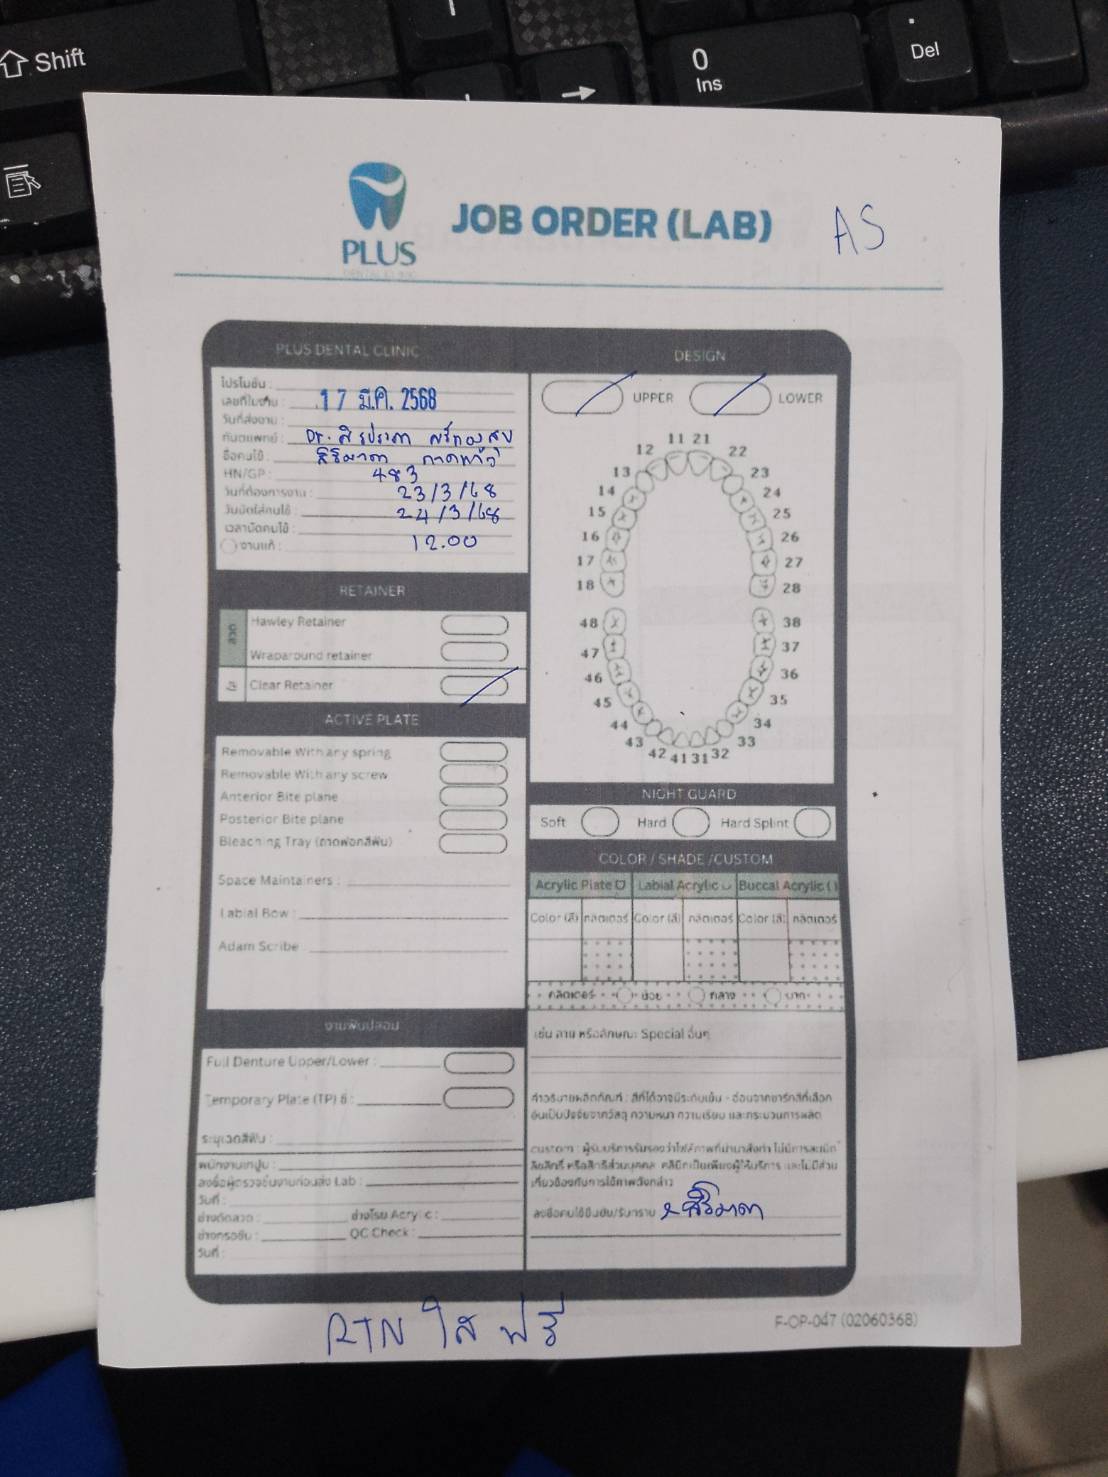 Shift
0
Ins
Del
PLUS
DENTAL CLINIC
JOB ORDER (LAB)
AS
PLUS DENTAL CLINIC
โปรโมชัน :
เลขที่ใบงาน :
17 มี.ค. 2568
วันที่ส่งงาน :
ทันตแพทย์ : Dr.
ชื่อคนไข้ :
HN/GP : 483
วันที่ต้องการงาน : 23/3/68
วันนัดใส่คนไข้ : 24/3/68
เวลานัดคนไข้ :
งานแก้ : 12.00
RETAINER
ลวด
Hawley Retainer
Wraparound retainer
ใส
Clear Retainer
ACTIVE PLATE
Removable With any spring
Removable With any screw
Anterior Bite plane
Posterior Bite plane
Bleaching Tray (ถาดฟอกสีฟัน)
Space Maintainers :
Labial Bow :
Adam Scribe
งานฟันปลอม
Full Denture Upper/Lower :
Temporary Plate (TP) ซี่ :
ระบุเฉดสีฟัน :
พนักงานเทปูน :
ลงชื่อผู้ตรวจชิ้นงานก่อนส่ง Lab :
วันที่ :
ช่างดัดลวด : ช่างโรย Acrylic :
ช่างกรอขัด : QC Check :
วันที่ :
DESIGN
UPPER LOWER
11 21
12 22
13 23
14 24
15 25
16 26
17 27
18 28
48 38
47 37
46 36
45 35
44 34
43 33
42 41 31 32
NIGHT GUARD
Soft Hard Hard Splint
COLOR / SHADE /CUSTOM
Acrylic Plate Labial Acrylic Buccal Acrylic
Color (สี) กลิตเตอร์ Color (สี) กลิตเตอร์ Color (สี) กลิตเตอร์
กลิตเตอร์ น้อย กลาง มาก
เช่น ลาย หรือลักษณะ Special อื่นๆ
คำอธิบายผลิตภัณฑ์ : สีที่ได้อาจมีระดับเข้ม - อ่อนจากชาร์ทสีที่เลือก
อันเป็นปัจจัยจากวัสดุ ความหนา ความเรียบ และกระบวนการผลิต
custom : ผู้รับบริการรับรองว่าไฟล์ภาพที่นำมาสั่งทำ ไม่มีการละเมิด
ลิขสิทธิ์ หรือสิทธิส่วนบุคคล คลินิกเป็นเพียงผู้ให้บริการ และไม่มีส่วน
เกี่ยวข้องกับการใช้ภาพดังกล่าว
ลงชื่อคนไข้ยืนยัน/รับทราบ
RTN ใส ฟรี
F-OP-047 (02060368)